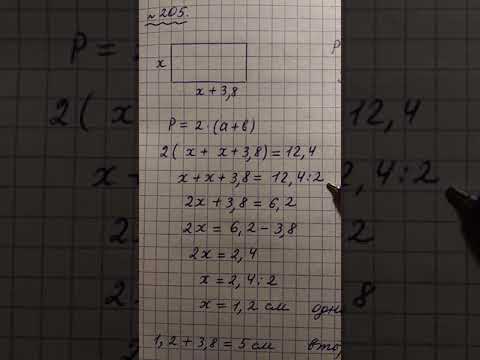 № 205.
x
x + 3,8
P = 2 · (a + b)
2( x + x + 3,8) = 12,4
x + x + 3,8 = 12,4 : 2
2x + 3,8 = 6,2
2x = 6,2 - 3,8
2x = 2,4
x = 2,4 : 2
x = 1,2 см
1,2 + 3,8 = 5 см